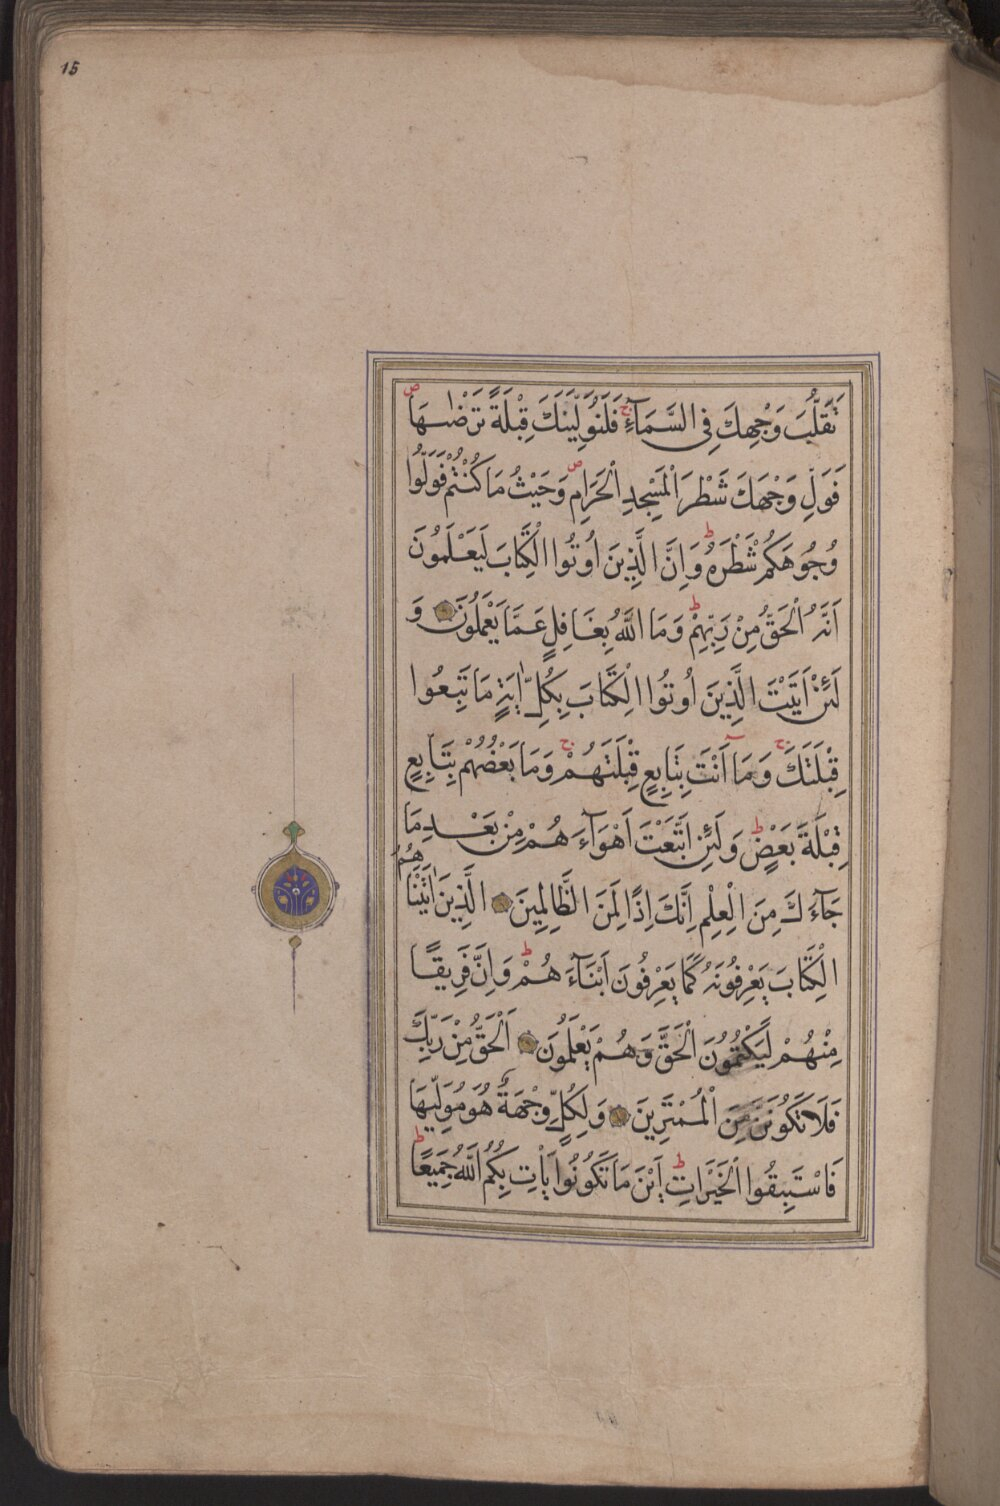 15
تَقَلُّبَ وَجْهِكَ فِي السَّمَآءِ ج فَلَنُوَلِّيَنَّكَ قِبْلَةً تَرْضٰيهَا ص
فَوَلِّ وَجْهَكَ شَطْرَ الْمَسْجِدِ الْحَرَامِ ص وَحَيْثُ مَا كُنْتُمْ فَوَلُّوا
وُجُوهَكُمْ شَطْرَهُ ط وَاِنَّ الَّذِينَ اُوتُوا الْكِتَابَ لَيَعْلَمُونَ
اَنَّهُ الْحَقُّ مِنْ رَبِّهِمْ ط وَمَا اللَّهُ بِغَافِلٍ عَمَّا يَعْمَلُونَ وَ
لَئِنْ اَتَيْتَ الَّذِينَ اُوتُوا الْكِتَابَ بِكُلِّ اٰيَةٍ مَا تَبِعُوا
قِبْلَتَكَ ج وَمَآ اَنْتَ بِتَابِعٍ قِبْلَتَهُمْ ج وَمَا بَعْضُهُمْ بِتَابِعٍ
قِبْلَةَ بَعْضٍ ط وَلَئِنِ اتَّبَعْتَ اَهْوَآءَهُمْ مِنْ بَعْدِ مَا
جَآءَكَ مِنَ الْعِلْمِ اِنَّكَ اِذًا لَمِنَ الظَّالِمِينَ الَّذِينَ اٰتَيْنَاهُمُ
الْكِتَابَ يَعْرِفُونَهُ كَمَا يَعْرِفُونَ اَبْنَآءَهُمْ ط وَاِنَّ فَرِيقًا
مِنْهُمْ لَيَكْتُمُونَ الْحَقَّ وَهُمْ يَعْلَمُونَ اَلْحَقُّ مِنْ رَبِّكَ
فَلَا تَكُونَنَّ مِنَ الْمُمْتَرِينَ وَلِكُلٍّ وِجْهَةٌ هُوَ مُوَلِّيهَا
فَاسْتَبِقُوا الْخَيْرَاتِ ط اَيْنَ مَا تَكُونُوا يَأْتِ بِكُمُ اللَّهُ جَمِيعًا ط